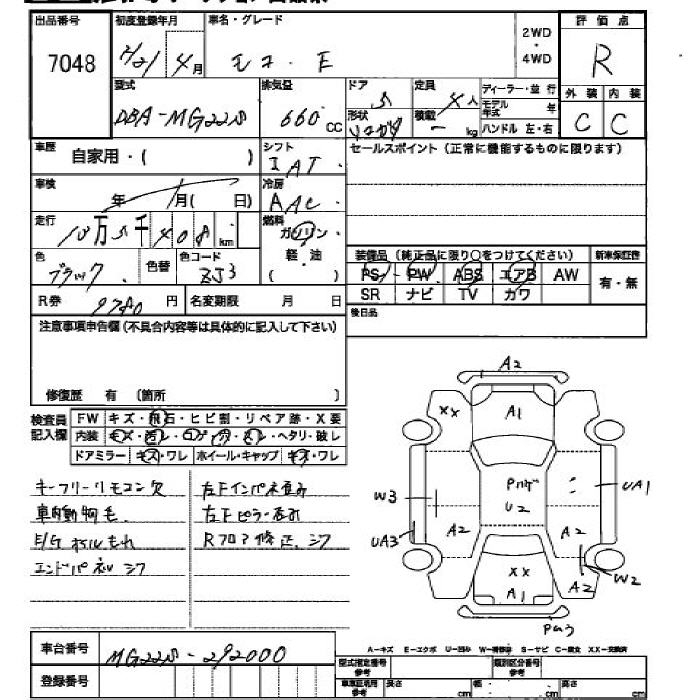 出品番号 初度登録年月 車名・グレード 評価点
7048 H21年4月 モコ・E 2WD・4WD R
型式 排気量 ドア 定員 ディーラー・並行 外装 内装
DBA-MG22S 660cc 5 4人 モデル年式 年 C C
形状 積載 - kg ハンドル 左・右
車歴 自家用・( ) シフト IAT セールスポイント(正常に機能するものに限ります)
車検 年 月(日) 冷房 AAC
走行 10万5千408km 燃料 ガソリン・軽油( )
色 ブラック 色替 色コード ZJ3
装備品(純正品に限り○をつけてください) 新車保証書
PS PW ABS エアB AW 有・無
SR ナビ TV カワ
R券 9780円 名変期限 月 日
後日品
注意事項申告欄(不具合内容等は具体的に記入して下さい)
修復歴 有 〔箇所 〕
検査員記入欄 FW キズ・飛石・ヒビ割・リペア跡・X要
内装 キズ・汚レ・コゲ・穴・スレ・ヘタリ・破レ
ドアミラー キズ・ワレ ホイール・キャップ キズ・ワレ
キーフリーリモコン欠 左FインパネS歪み
車内動物毛 左Fピラー歪み
E/Gオイルもれ Rフロア修正、シワ
エンドパネルシワ
A2
XX A1
Pハゲ
U2
W3 UA1
UA3 A2 A2
XX A2 W2
A1
PU3
車台番号 MG22S-292000
A-キズ E-エクボ U-凹み W-補修跡 S-サビ C-腐食 XX-交換済
登録番号 型式指定番号 参考 類別区分番号 参考
車車証記用 参考 長さ cm 幅 cm 高さ cm